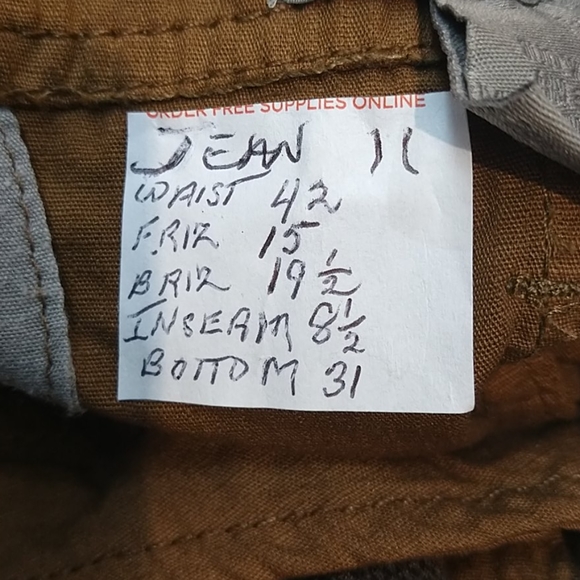 ORDER FREE SUPPLIES ONLINE
JEAN 11
WAIST 42
F.RIZ 15
BRIZ 19 1/2
INSEAM 8 1/2
BOTTOM 31